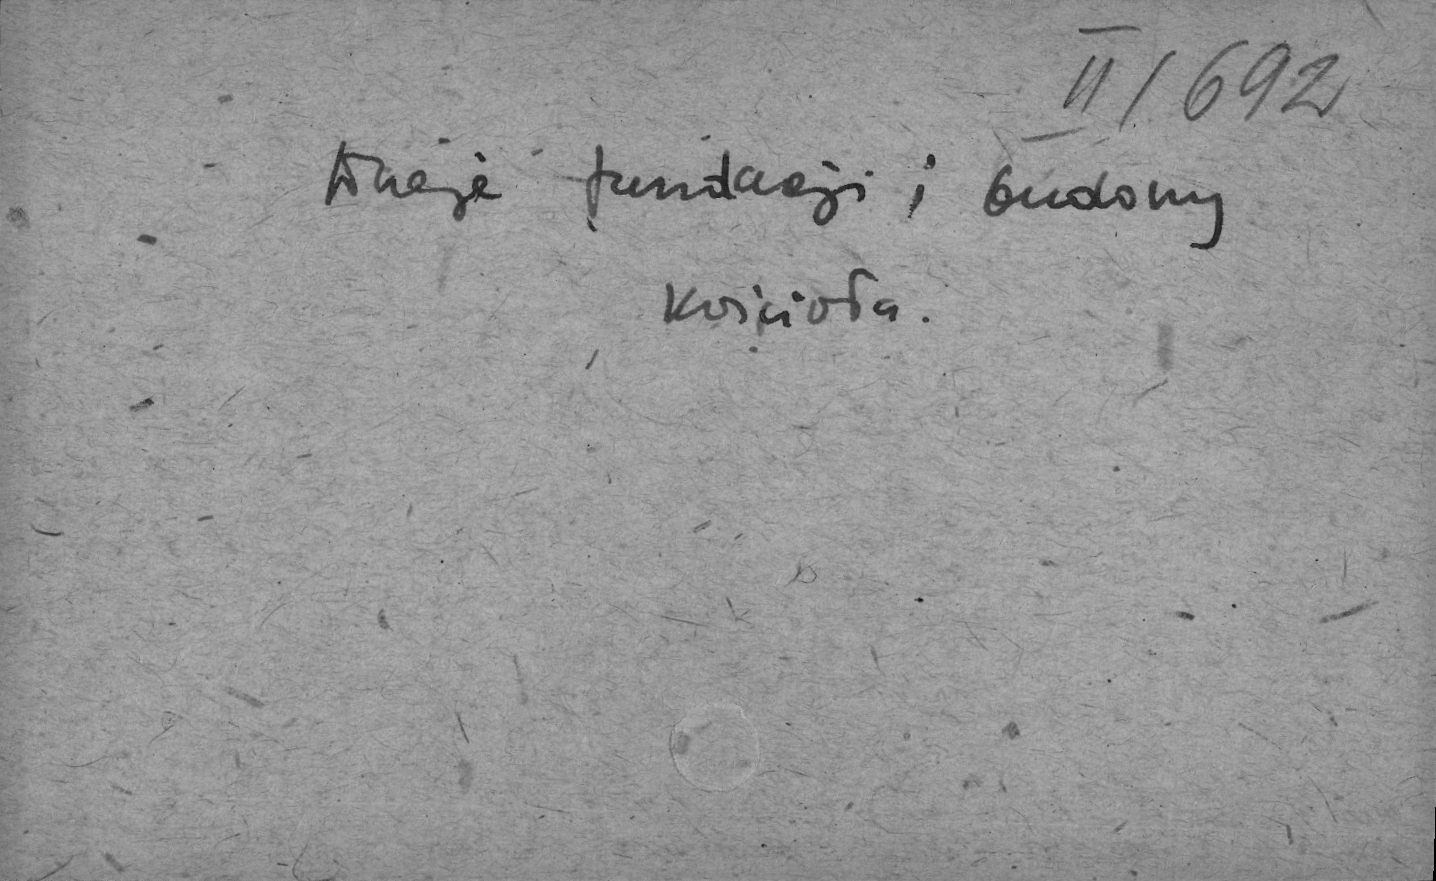 II/692
fundacji i budowy
kościoła.